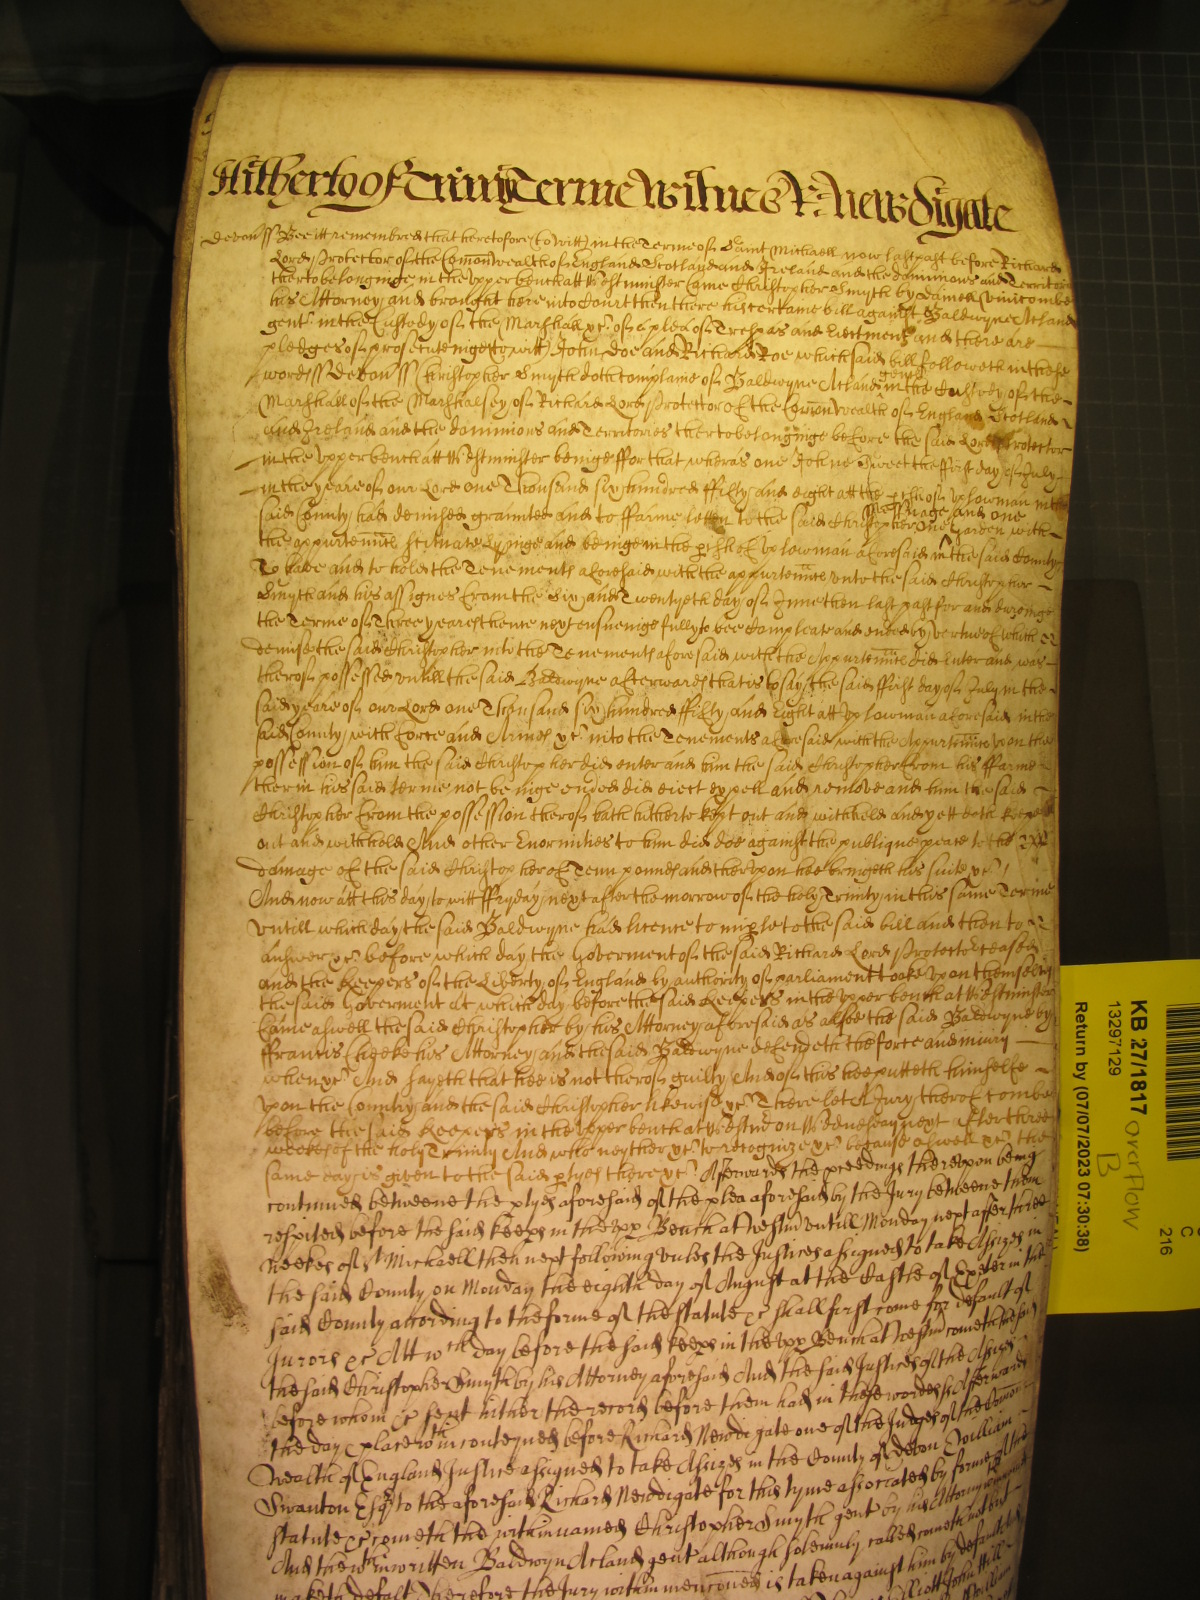 Hitherto of Trinity Terme Witnes R: Newdigate
Devon ss Bee itt remembred that heretofore (to witt) in the Terme of Saint Michaell now last past before Richard
Lord Protector of the Comonwealth of England Scotland and Ireland and the dominions and Territories
thertobelonginge in the upper bench att Westminster Came Christopher Smyth by Daniell Vinicombe
his Attorney and brought here into Court then there his certaine bill against Baldwyne Acland
gent in the Custody of the Marshall &c of a plea of Trespas and Eiectment and there are
pledges of prosecuteinge (to witt) John Doe and Richard Roe which said bill followeth in these
words ss Devon ss Christopher Smyth doth complaine of Baldwyne Acland gent in the Custody of the
Marshall of the Marshalsey of Richard Lord Protector of the Comonwealth of England Scotland
and Ireland and the dominions and Territories thertobelonginge before the said Lord Protector
in the upper bench att Westminster beinge ffor that wheras one John Sweet the first day of July
in the yeare of our Lord one Thousand six hundred fifty and eight att the p'ish of Uplowman in the
said County had demised graunted and to ffarme letten to the said Christopher one Messuage and one Garden with
the appurtenn'ces scituate lyinge and beinge in the p'ish of Uplowman aforesaid in the said County
To have and to hold the Tenements aforesaid with the appurtenn'ces unto the said Christopher
Smyth and his assignes from the Six and Twentyeth day of June then last past for and dureinge
the Terme of Three yeares thence next ensueinge fully to bee Compleate and ended by vertue of which
demise the said Christopher into the Tenements aforesaid with the Appurtenn'ces did Enter and was
therof possessed untill the said Baldwyne afterwards that is to say the said ffirst day of July in the
said yeare of our Lord one Thousand six hundred ffifty and Eight att Uplowman aforesaid in the
said County with force and Armes &c into the Tenements aforesaid with the Appurtenn'ces upon the
possession of him the said Christopher did enter and him the said Christopher from his ffarme
therin his said terme not beinge ended did eiect expell and remove and him the said
Christopher from the possession therof hath hitherto kept out and withheld and yett doth keepe
out and withhold And other Enormities to him did doe against the publique peace to the
damage of the said Christopher of Tenn pounds and therupon hee bringeth his suite &c
And now att this day to witt ffryday next after the morrow of the holy Trinity in this same Terme
untill which day the said Baldwyne had licence to imparle to the said bill and then to
answer &c before which day the Goverment of the said Richard Lord Protector Ceased
and the Keepers of the Liberty of England by authority of parliament tooke upon themselves
the said Goverment At which day before the said Keepers in the upper bench at Westminster
Came aswell the said Christopher by his Attorney aforesaid as alsoe the said Baldwyne by
ffrancis Cheeke his Attorney and the said Baldwyne defendeth the force and iniury
when &c And sayeth that hee is not therof guilty And of this hee putteth himselfe
upon the Country and the said Christopher likewise &c Therefore let A Jury therof come
before the said Keepers in the upper bench at Westm' on Wednesday next after three
weekes of the holy Trinity And who neyther &c to recognize &c because aswell &c the
same day is given to the said p'tyes there &c Afterwards the proceedings thereupon being
continued betweene the p'tyes aforesaid of the plea aforesaid by the Jury betweene them
respited before the said keep's in the upp' Bench at Westm' untill Monday next after three
weekes of St Michaell then next following unles the Justices assigned to take Assizes in
the said County on Monday the eighth day of August at the Castle of Exeter in the
said County according to the forme of the statute &c shall first come for default of
Jurors &c Att wch day before the said keep's in the upp' Bench at Westm' cometh
the said Christopher Smyth by his Attorney aforesaid And the said Justices of the Assizes
before whom &c sent hither the record before them had in these wordes ss Afterwards
the day & place wthin conteyned before Richard Newdigate one of the Judges of the Comon
Wealth of England Justice assigned to take Assizes in the County of Devon William
Swanton Esqr to the aforesaid Richard Newdigate for this tyme associated by forme of the
statute &c cometh the within named Christopher Smyth gent by his Attorny
And the wthin written Baldwyn Acland gent although solemnly called cometh not but
maketh default Therefore the Jury within menconed is taken against him by default
KB 27/1817 overflow
B
13297129
Return by (07/07/2023 07:30:38)
216
C